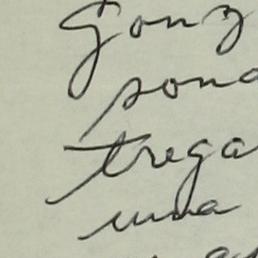 Gonz
sona
trega
una